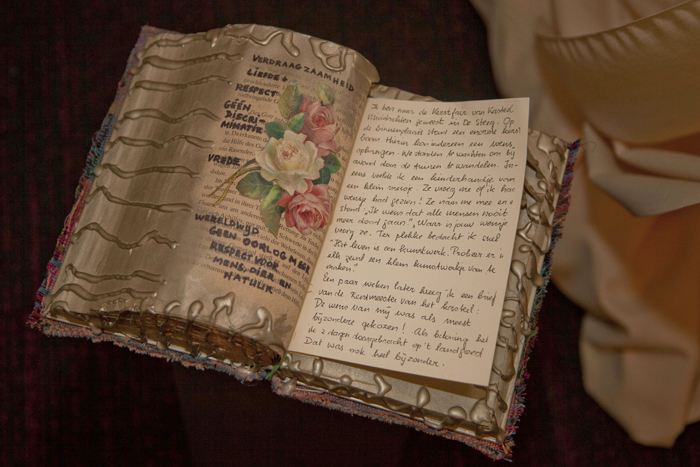 VERDRAAGZAAMHEID
LIEFDE +
RESPECT
GÉÉN
DISCRI-
MINATIE
VREDE
WERELDWIJD
GEEN OORLOG MEER
RESPECT VOOR
MENS, DIER EN
NATUUR
Ik ben naar de Kerstfair van Kasteel
geweest in De Steeg. Op
de binnenplaats stond een enorme kerst
boom hierin kon iedereen een wens
ophangen. We stonden te wachten om bij
avond door de tuinen te wandelen. In-
eens voelde ik een kinderhandje van
een klein meisje. Ze vroeg me of ik had
wensje had gezien! Ze nam me mee en
stond "Ik wens dat alle mensen nooit
meer dood gaan." "Waar is jouw wensje"
vroeg ze. Ter plekke bedacht ik snel
"Het leven is een kunstwerk. Probeer er
elk jaar een klein kunstwerkje van te
maken."
Een paar weken later kreeg ik een brief
van de Rentmeester van het kasteel:
De wens van mij was als meest
bijzondere gekozen! Als beloning heb
ik 2 dagen doorgebracht op 't landgoed
Dat was ook heel bijzonder.